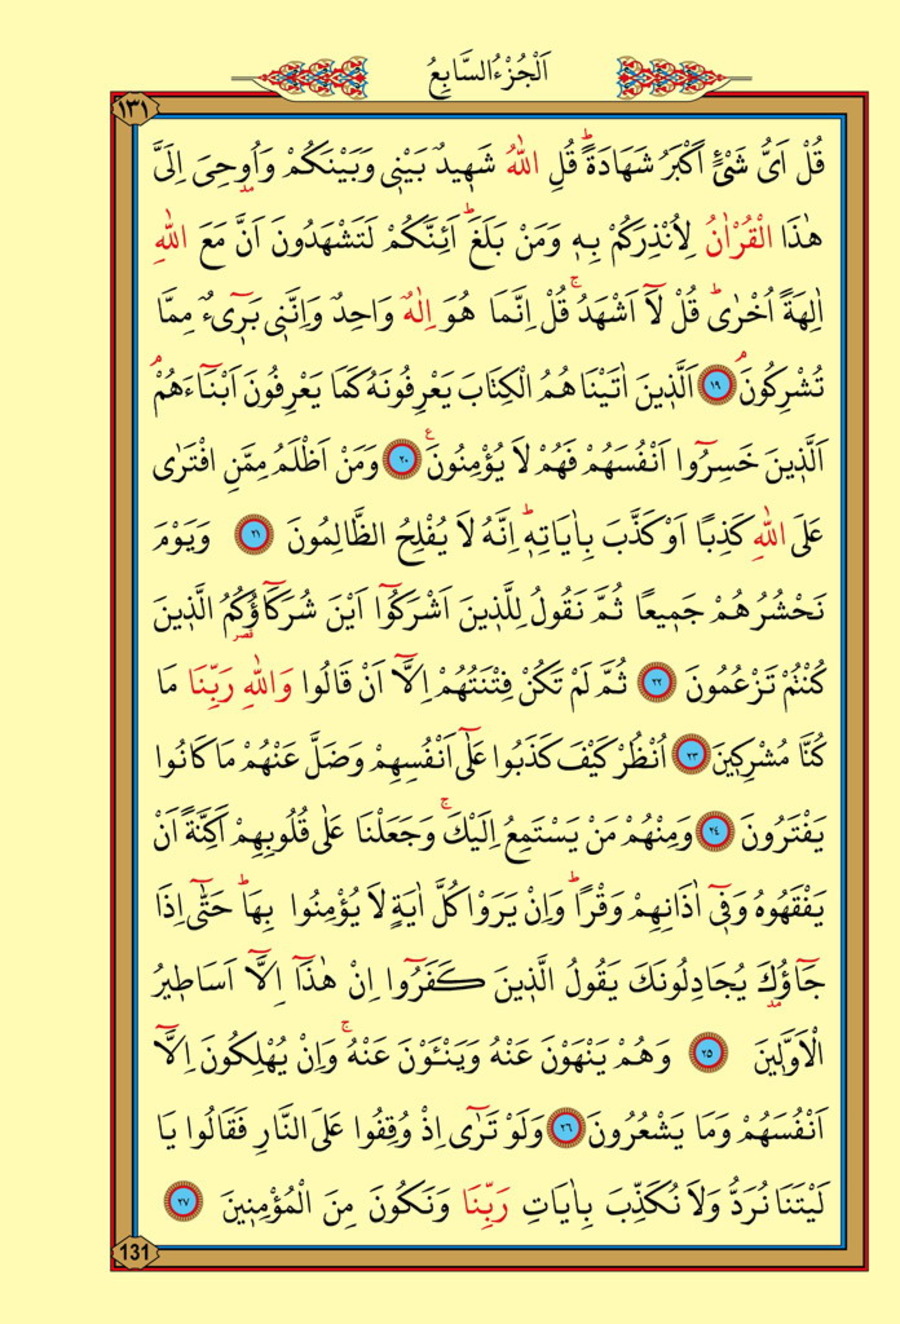 اَلْجُزْءُ السَّابِعُ
١٣١
قُلْ اَىُّ شَىْءٍ اَكْبَرُ شَهَادَةًۜ قُلِ اللّٰهُ شَه۪يدٌ بَيْن۪ى وَبَيْنَكُمْ وَاُوحِىَ اِلَىَّ
هٰذَا الْقُرْاٰنُ لِاُنْذِرَكُمْ بِه۪ وَمَنْ بَلَغَۜ اَئِنَّكُمْ لَتَشْهَدُونَ اَنَّ مَعَ اللّٰهِ
اٰلِهَةً اُخْرٰىۜ قُلْ لَٓا اَشْهَدُۚ قُلْ اِنَّمَا هُوَ اِلٰهٌ وَاحِدٌ وَاِنَّن۪ى بَر۪ٓىءٌ مِمَّا
تُشْرِكُونَۢ ﴿١٩﴾ اَلَّذ۪ينَ اٰتَيْنَا هُمُ الْكِتَابَ يَعْرِفُونَهُ كَمَا يَعْرِفُونَ اَبْنَٓاءَهُمْۢ
اَلَّذ۪ينَ خَسِرُٓوا اَنْفُسَهُمْ فَهُمْ لَا يُؤْمِنُونَ۟ ﴿٢٠﴾ وَمَنْ اَظْلَمُ مِمَّنِ افْتَرٰى
عَلَى اللّٰهِ كَذِبًا اَوْ كَذَّبَ بِاٰيَاتِه۪ۜ اِنَّهُ لَا يُفْلِحُ الظَّالِمُونَ ﴿٢١﴾ وَيَوْمَ
نَحْشُرُهُمْ جَم۪يعًا ثُمَّ نَقُولُ لِلَّذ۪ينَ اَشْرَكُٓوا اَيْنَ شُرَكَٓاؤُكُمُ الَّذ۪ينَ
كُنْتُمْ تَزْعُمُونَ ﴿٢٢﴾ ثُمَّ لَمْ تَكُنْ فِتْنَتُهُمْ اِلَّٓا اَنْ قَالُوا وَاللّٰهِ رَبِّنَا مَا
كُنَّا مُشْرِك۪ينَ ﴿٢٣﴾ اُنْظُرْ كَيْفَ كَذَبُوا عَلٰٓى اَنْفُسِهِمْ وَضَلَّ عَنْهُمْ مَا كَانُوا
يَفْتَرُونَ ﴿٢٤﴾ وَمِنْهُمْ مَنْ يَسْتَمِعُ اِلَيْكَۚ وَجَعَلْنَا عَلٰى قُلُوبِهِمْ اَكِنَّةً اَنْ
يَفْقَهُوهُ وَف۪ٓى اٰذَانِهِمْ وَقْرًاۜ وَاِنْ يَرَوْا كُلَّ اٰيَةٍ لَا يُؤْمِنُوا بِهَاۜ حَتّٰٓى اِذَا
جَٓاؤُكَ يُجَادِلُونَكَ يَقُولُ الَّذ۪ينَ كَفَرُٓوا اِنْ هٰذَٓا اِلَّٓا اَسَاط۪يرُ
الْاَوَّل۪ينَ ﴿٢٥﴾ وَهُمْ يَنْهَوْنَ عَنْهُ وَيَنْـَٔوْنَ عَنْهُۚ وَاِنْ يُهْلِكُونَ اِلَّٓا
اَنْفُسَهُمْ وَمَا يَشْعُرُونَ ﴿٢٦﴾ وَلَوْ تَرٰٓى اِذْ وُقِفُوا عَلَى النَّارِ فَقَالُوا يَا
لَيْتَنَا نُرَدُّ وَلَا نُكَذِّبَ بِاٰيَاتِ رَبِّنَا وَنَكُونَ مِنَ الْمُؤْمِن۪ينَ ﴿٢٧﴾
131